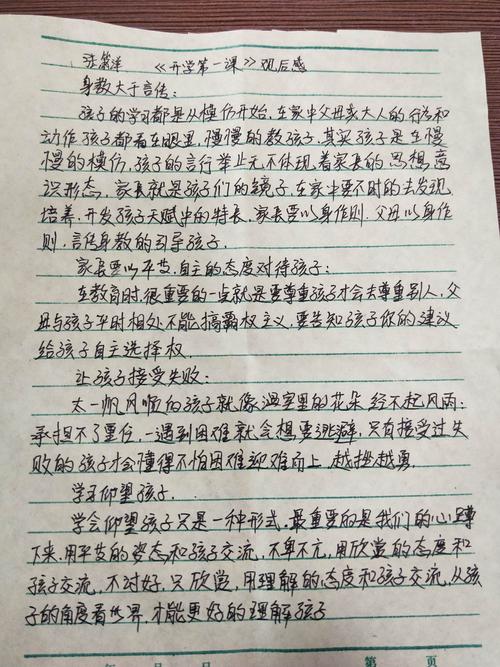 张箫洋 《开学第一课》观后感
身教大于言传:
孩子的学习都是从模仿开始,在家中父母亲大人的行为和
动作孩子都看在眼里,慢慢的教孩子,其实孩子是在慢
慢的模仿,孩子的言行举止无不体现着家长的思想,意
识形态,家长就是孩子们的镜子,在家中要不时的去发现
培养,开发孩子天赋中的特长,家长要以身作则.父母以身作
则,言传身教的引导孩子.
家长要以平等.自主的态度对待孩子:
在教育时,很重要的一点就是要尊重孩子才会去尊重别人,父
母与孩子平时相处不能搞霸权主义,要告知孩子你的建议
给孩子自主选择权.
让孩子接受失败:
太一帆风顺的孩子就像温室里的花朵经不起风雨;
承担不了重任,一遇到困难就会想要逃避,只有接受过失
败的孩子才会懂得不怕困难迎难而上,越挫越勇.
学习仰望孩子.
学会仰望孩子只是一种形式.最重要的是我们的心蹲
下来,用平等的姿态和孩子交流,不卑不亢,用欣赏的态度和
孩子交流,不讨好,只欣赏,用理解的态度和孩子交流,从孩
子的角度看世界,才能更好的理解孩子
年 月 日 第 页